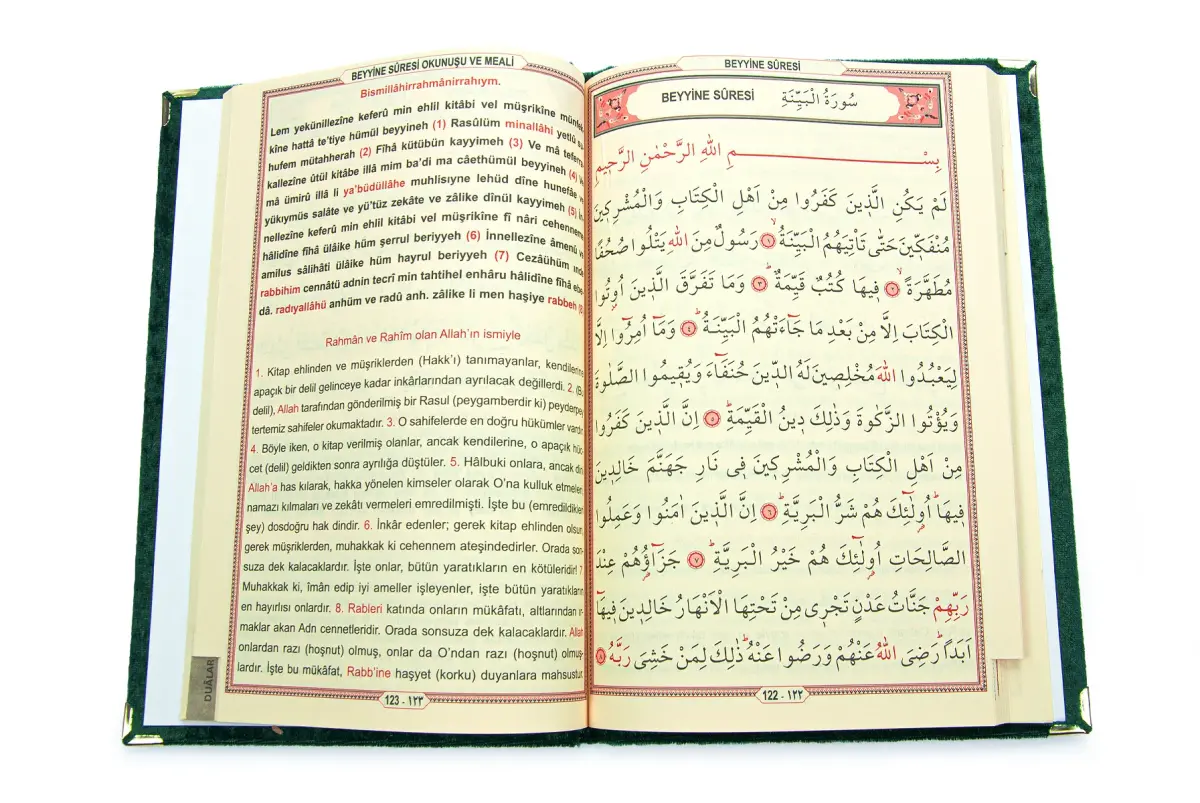 BEYYİNE SÛRESİ
BEYYİNE SÛRESİ سُورَةُ الْبَيِّنَةِ
بِسْــــــمِ اللهِ الرَّحْمٰنِ الرَّحِيمِ
لَمْ يَكُنِ الَّذِينَ كَفَرُوا مِنْ اَهْلِ الْكِتَابِ وَالْمُشْرِكِينَ
مُنْفَكِّينَ حَتّٰى تَاْتِيَهُمُ الْبَيِّنَةُۙ ﴿١﴾ رَسُولٌ مِنَ اللهِ يَتْلُوا صُحُفًا
مُطَهَّرَةًۙ ﴿٢﴾ فِيهَا كُتُبٌ قَيِّمَةٌۜ ﴿٣﴾ وَمَا تَفَرَّقَ الَّذِينَ اُو۫تُوا
الْكِتَابَ اِلَّا مِنْ بَعْدِ مَا جَٓاءَتْهُمُ الْبَيِّنَةُۜ ﴿٤﴾ وَمَٓا اُمِرُٓوا اِلَّا
لِيَعْبُدُوا اللهَ مُخْلِصِينَ لَهُ الدِّينَ حُنَفَٓاءَ وَيُقِيمُوا الصَّلٰوةَ
وَيُؤْتُوا الزَّكٰوةَ وَذٰلِكَ دِينُ الْقَيِّمَةِۜ ﴿٥﴾ اِنَّ الَّذِينَ كَفَرُوا
مِنْ اَهْلِ الْكِتَابِ وَالْمُشْرِكِينَ فِي نَارِ جَهَنَّمَ خَالِدِينَ
فِيهَاۜ اُو۬لٰٓئِكَ هُمْ شَرُّ الْبَرِيَّةِۜ ﴿٦﴾ اِنَّ الَّذِينَ اٰمَنُوا وَعَمِلُوا
الصَّالِحَاتِ اُو۬لٰٓئِكَ هُمْ خَيْرُ الْبَرِيَّةِۜ ﴿٧﴾ جَزَٓاؤُ۬هُمْ عِنْدَ
رَبِّهِمْ جَنَّاتُ عَدْنٍ تَجْرِي مِنْ تَحْتِهَا الْاَنْهَارُ خَالِدِينَ فِيهَٓا
اَبَدًاۜ رَضِيَ اللهُ عَنْهُمْ وَرَضُوا عَنْهُۜ ذٰلِكَ لِمَنْ خَشِيَ رَبَّهُ ﴿٨﴾
122 - ١٢٢
BEYYİNE SÛRESİ OKUNUŞU VE MEALİ
Bismillâhirrahmânirrahıym.
Lem yekünillezîne keferû min ehlil kitâbi vel müşrikîne münfek-
kîne hattâ te'tiye hümül beyyineh (1) Rasûlüm minallâhi yetlû su-
hufem mütahherah (2) Fîhâ kütübün kayyimeh (3) Ve mâ teferra-
kallezîne ûtül kitâbe illâ mim ba'di ma câethümül beyyineh (4)
mâ ümirû illâ li ya'büdüllâhe muhlisıyne lehüd dîne hunefâe ve
yükıymüs salâte ve yü'tüz zekâte ve zâlike dînül kayyimeh (5)
nellezîne keferû min ehlil kitâbi vel müşrikîne fî nâri cehenneme
hâlidîne fîhâ ülâike hüm şerrul beriyyeh (6) İnnellezîne âmenû ve
amilus sâlihâti ülâike hüm hayrul beriyyeh (7) Cezâühüm ınde
rabbihim cennâtü adnin tecrî min tahtihel enhâru hâlidîne fîhâ ebe-
dâ. radıyallâhü anhüm ve radû anh. zâlike li men haşiye rabbeh (8)
Rahmân ve Rahîm olan Allah'ın ismiyle
1. Kitap ehlinden ve müşriklerden (Hakk'ı) tanımayanlar, kendilerine
apaçık bir delil gelinceye kadar inkârlarından ayrılacak değillerdi. 2. (Bu
delil), Allah tarafından gönderilmiş bir Rasul (peygamberdir ki) peyderpey
tertemiz sahifeler okumaktadır. 3. O sahifelerde en doğru hükümler vardır.
4. Böyle iken, o kitap verilmiş olanlar, ancak kendilerine, o apaçık hüc-
cet (delil) geldikten sonra ayrılığa düştüler. 5. Hâlbuki onlara, ancak dini
Allah'a has kılarak, hakka yönelen kimseler olarak O'na kulluk etmeleri,
namazı kılmaları ve zekâtı vermeleri emredilmişti. İşte bu (emredildikleri
şey) dosdoğru hak dindir. 6. İnkâr edenler; gerek kitap ehlinden olsun
gerek müşriklerden, muhakkak ki cehennem ateşindedirler. Orada son-
suza dek kalacaklardır. İşte onlar, bütün yaratıkların en kötüleridir! 7.
Muhakkak ki, îmân edip iyi ameller işleyenler, işte bütün yaratıkların
en hayırlısı onlardır. 8. Rableri katında onların mükâfatı, altlarından ır-
maklar akan Adn cennetleridir. Orada sonsuza dek kalacaklardır. Allah
onlardan razı (hoşnut) olmuş, onlar da O'ndan razı (hoşnut) olmuş-
lardır. İşte bu mükâfat, Rabb'ine haşyet (korku) duyanlara mahsustur.
123 - ١٢٣
DUÂLAR